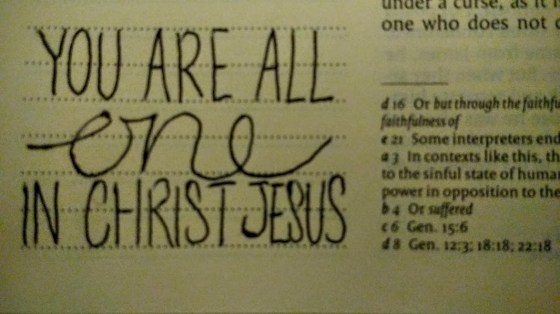 YOU ARE ALL
one
IN CHRIST JESUS
under a curse, as it
one who does not
d 16 Or but through the faithfu
faithfulness of
e 21 Some interpreters end
a 3 In contexts like this, th
to the sinful state of human
power in opposition to the
b 4 Or suffered
c 6 Gen. 15:6
d 8 Gen. 12:3; 18:18; 22:18